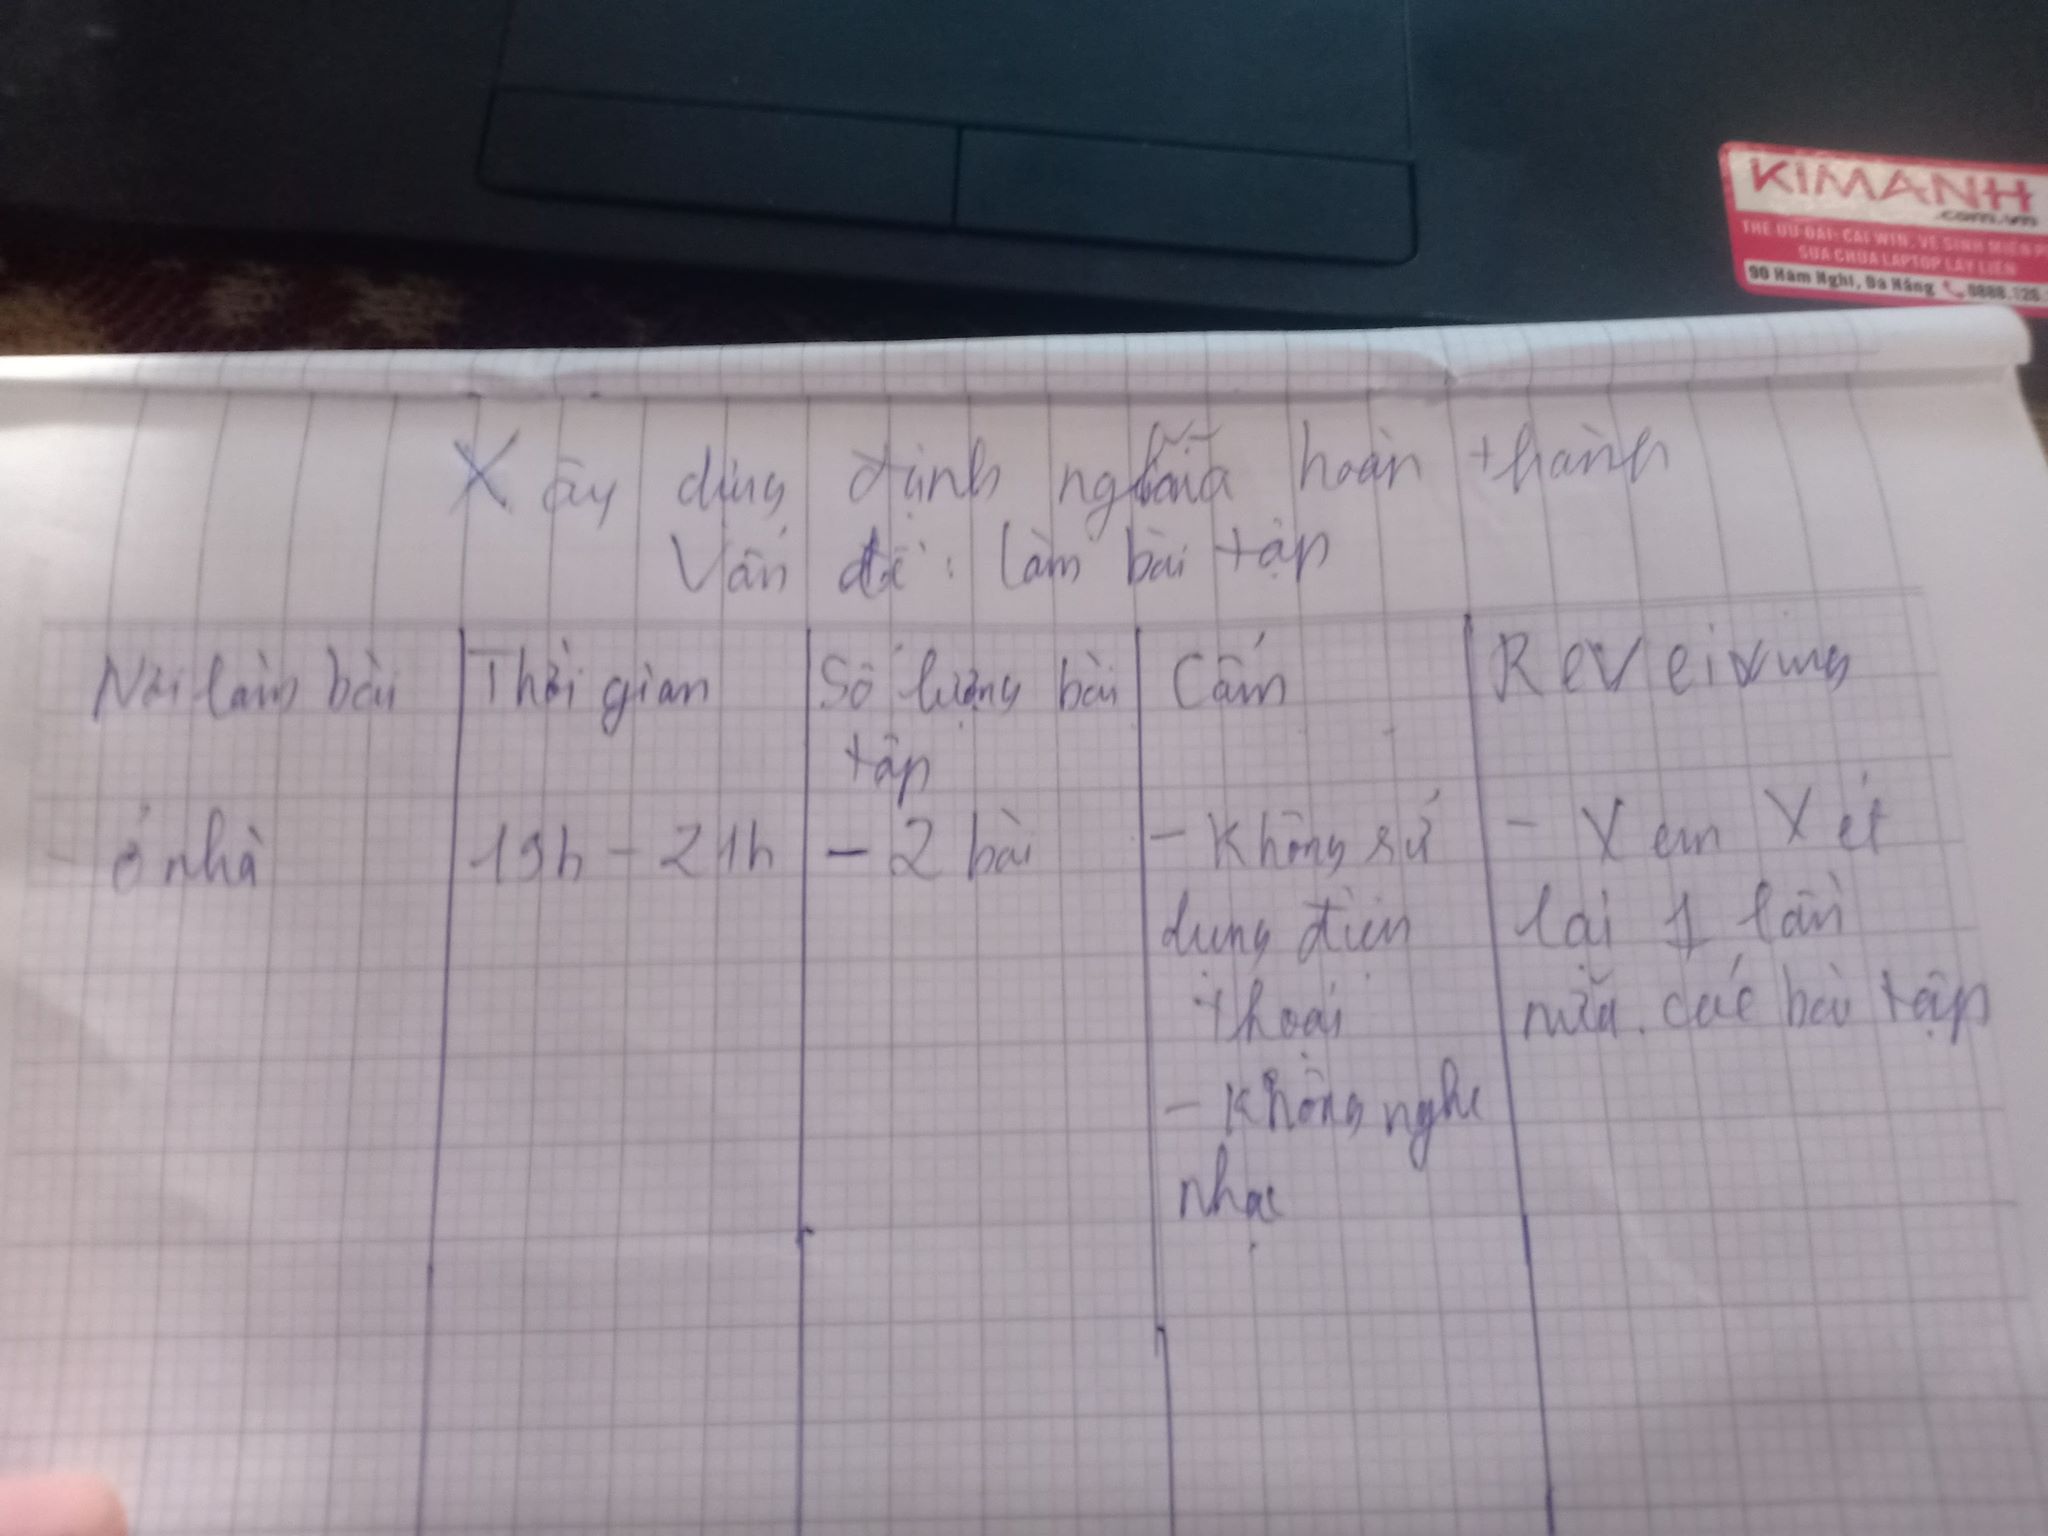 KIMANH
.com.vn
THẺ ƯU ĐÃI: CÀI WIN, VỆ SINH MIỄN P
SỬA CHỮA LAPTOP LẤY LIỀN
90 Hàm Nghi, Đà Nẵng 0888.128.
Xây dựng định nghĩa hoàn thành
Vấn đề: làm bài tập
Nơi làm bài
Thời gian
Số lượng bài
tập
Cấm
Reveiving
- ở nhà
19h - 21h
- 2 bài
- Không sử
dụng điện
thoại
- Không nghe
nhạc
- Xem xét
lại 1 lần
nữa các bài tập